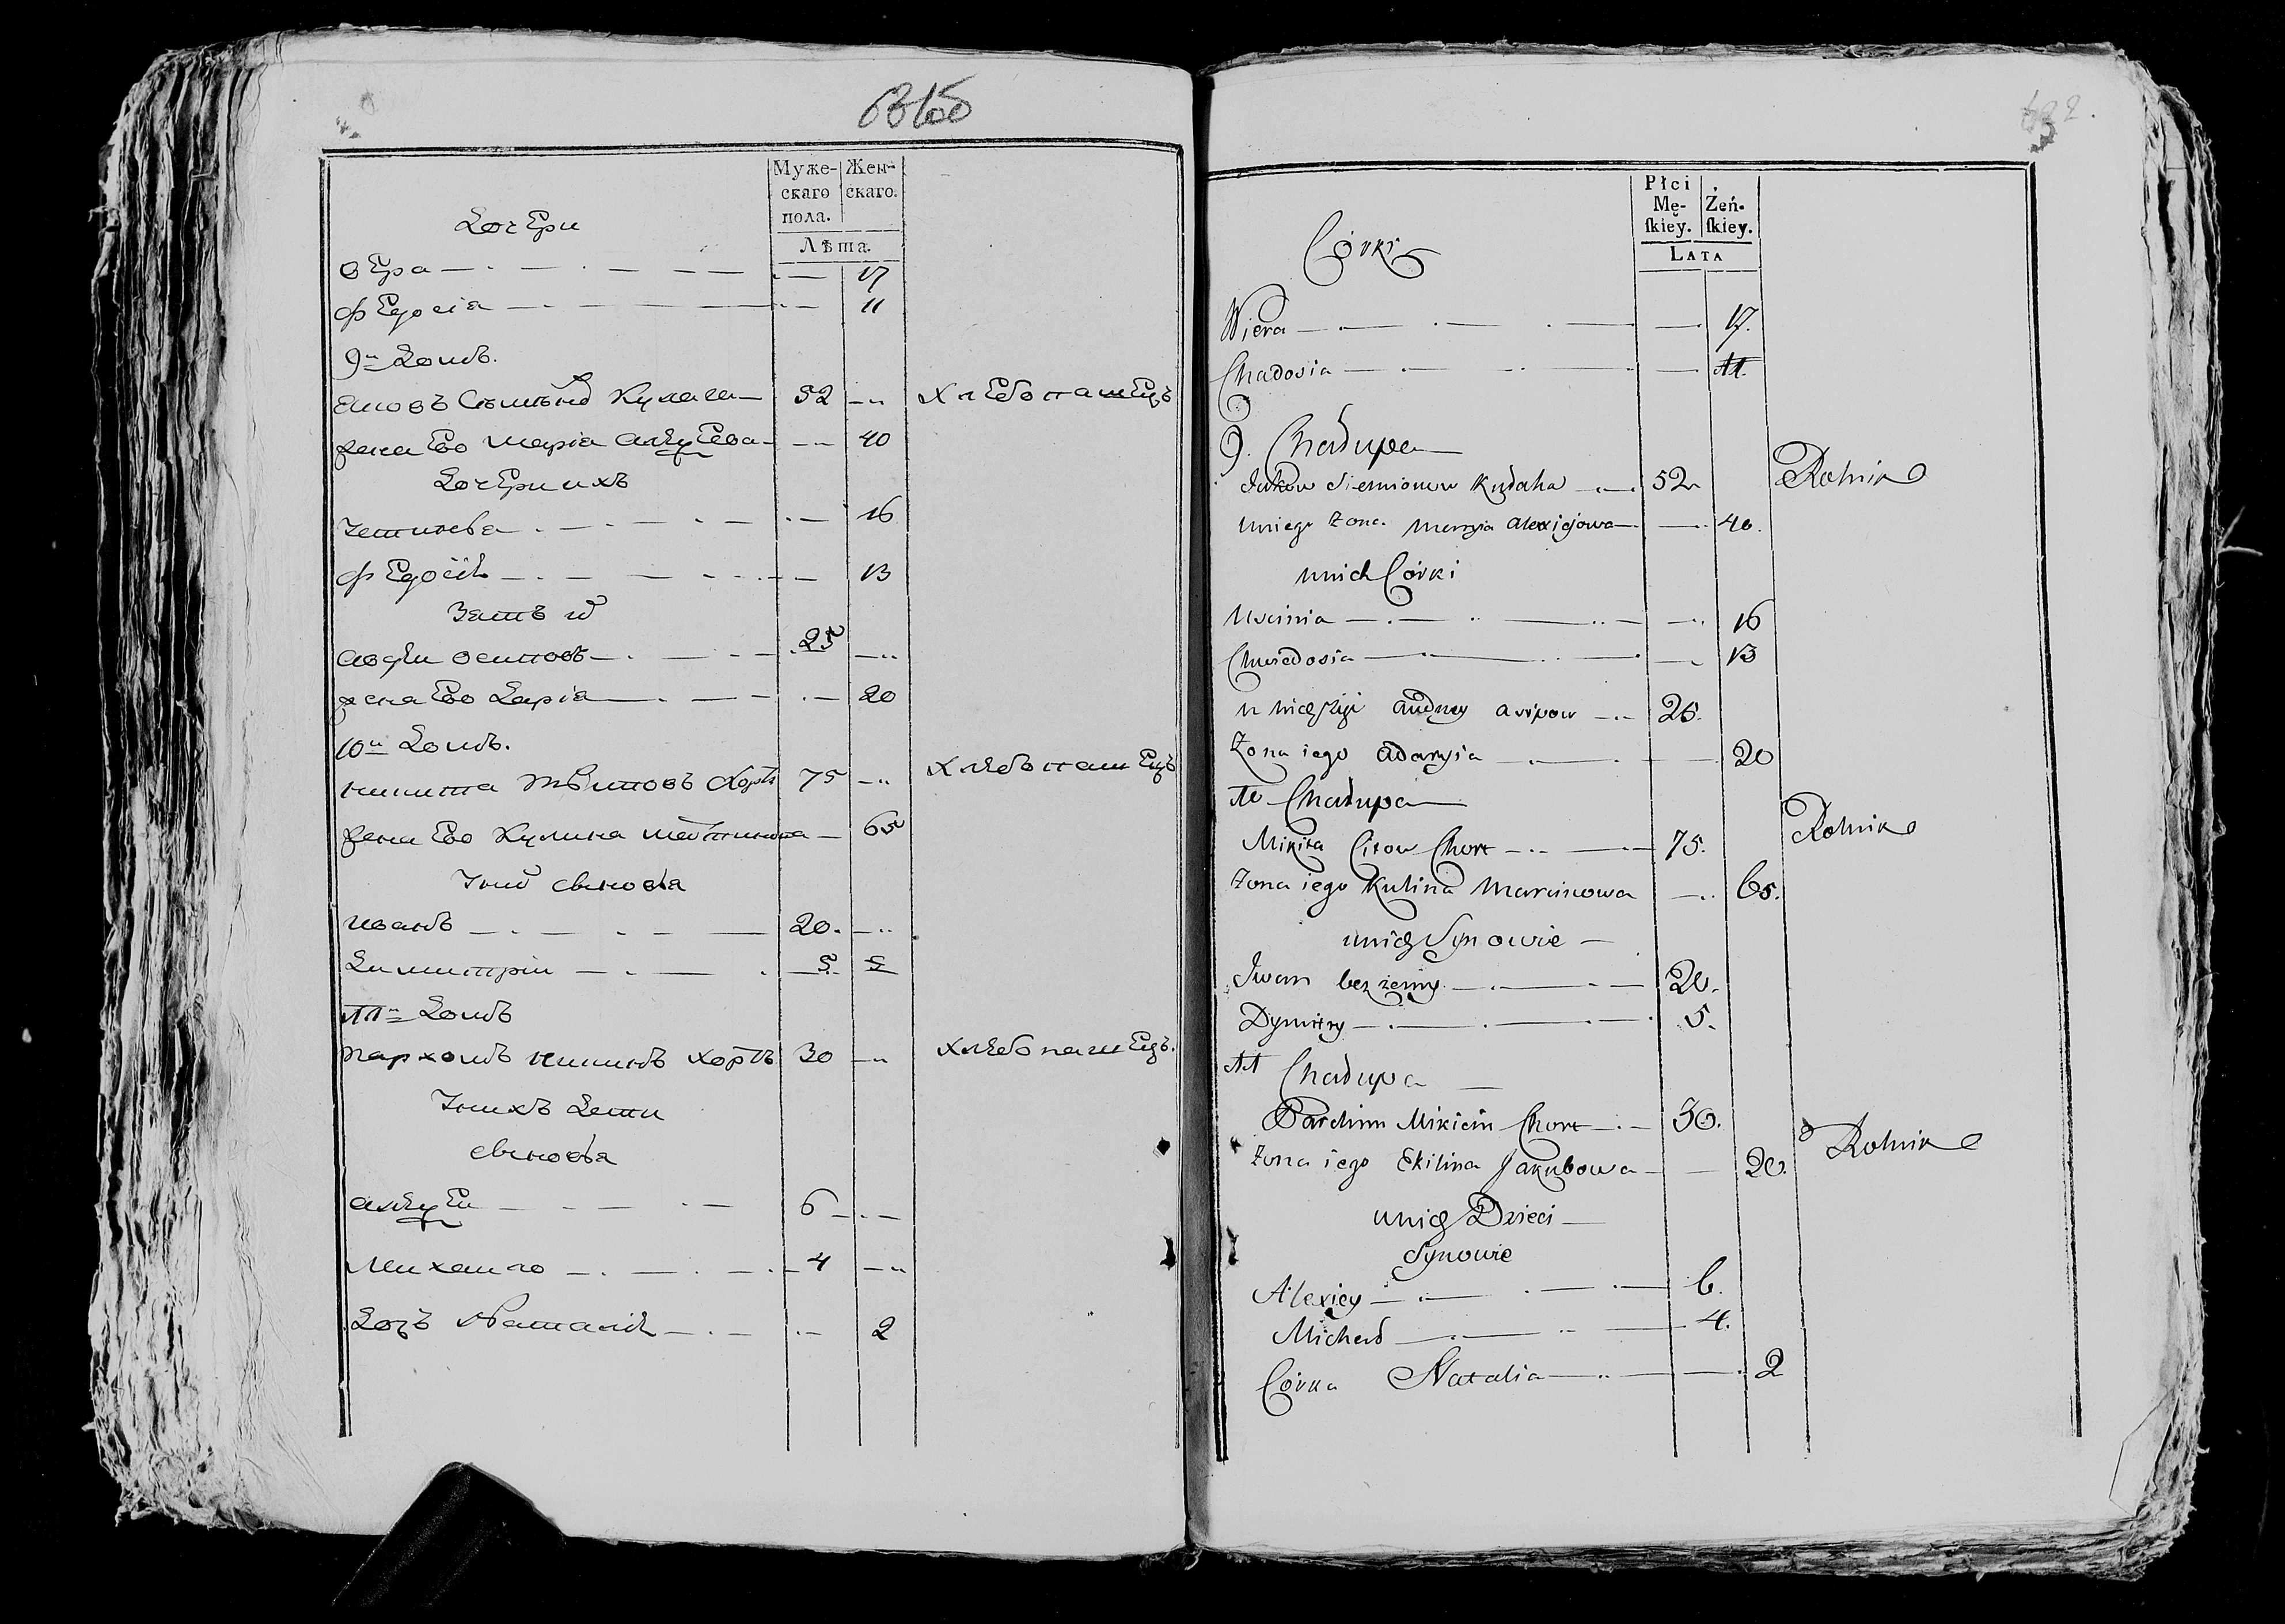 Муже-
скаго
пола.
Жен-
скаго.
Лѣта.
Дочери
вера 17
федосія 11
9й Домъ.
52 хлебопашецъ
жена Ево марія алѣксеева 40
Дочери ихъ
16
федосія 13
Зять
осиповъ 25
жена Ево Дарія 20
10й Домъ.
никита титовъ хортъ 75 хлебопашецъ
жена Ево Кулина 65
сыновья
иванъ 20.
Димитрій 5 5
11й Домъ
пархомъ никинъ хортъ 30 хлебопашецъ.
У нихъ Дети
сыновья
алѣксеи 6
михаило 4
Дочь Наталія 2
Płci
Mę-
ſkiey.
Żeń-
ſkiey.
LATA
Córki
Wiera 17.
Chadosia 11.
9. Chałupa
Jakow Siemionow Kudaha 52 Rolnik
u niego Żona Maryia Alexiejowa 40.
u nich Córki
Uscinia 16
Chwiedosia 13
u nich Audziey Asipow 25.
Żona iego Adaryia 20
10 Chałupa
Mikita Citow Chort 75. Rolnik
Żona iego Kulina Marcinowa 65.
u nich Synowie
Iwan bez żenny 20.
Dymitry 5.
11 Chałupa
Parchim Mikicin Chort 30. Rolnik
Żona iego Ekilina Jakubowa 20.
u nich Dzieci
Synowie
Alexiey 6.
Michał 4.
Córka Natalia 2